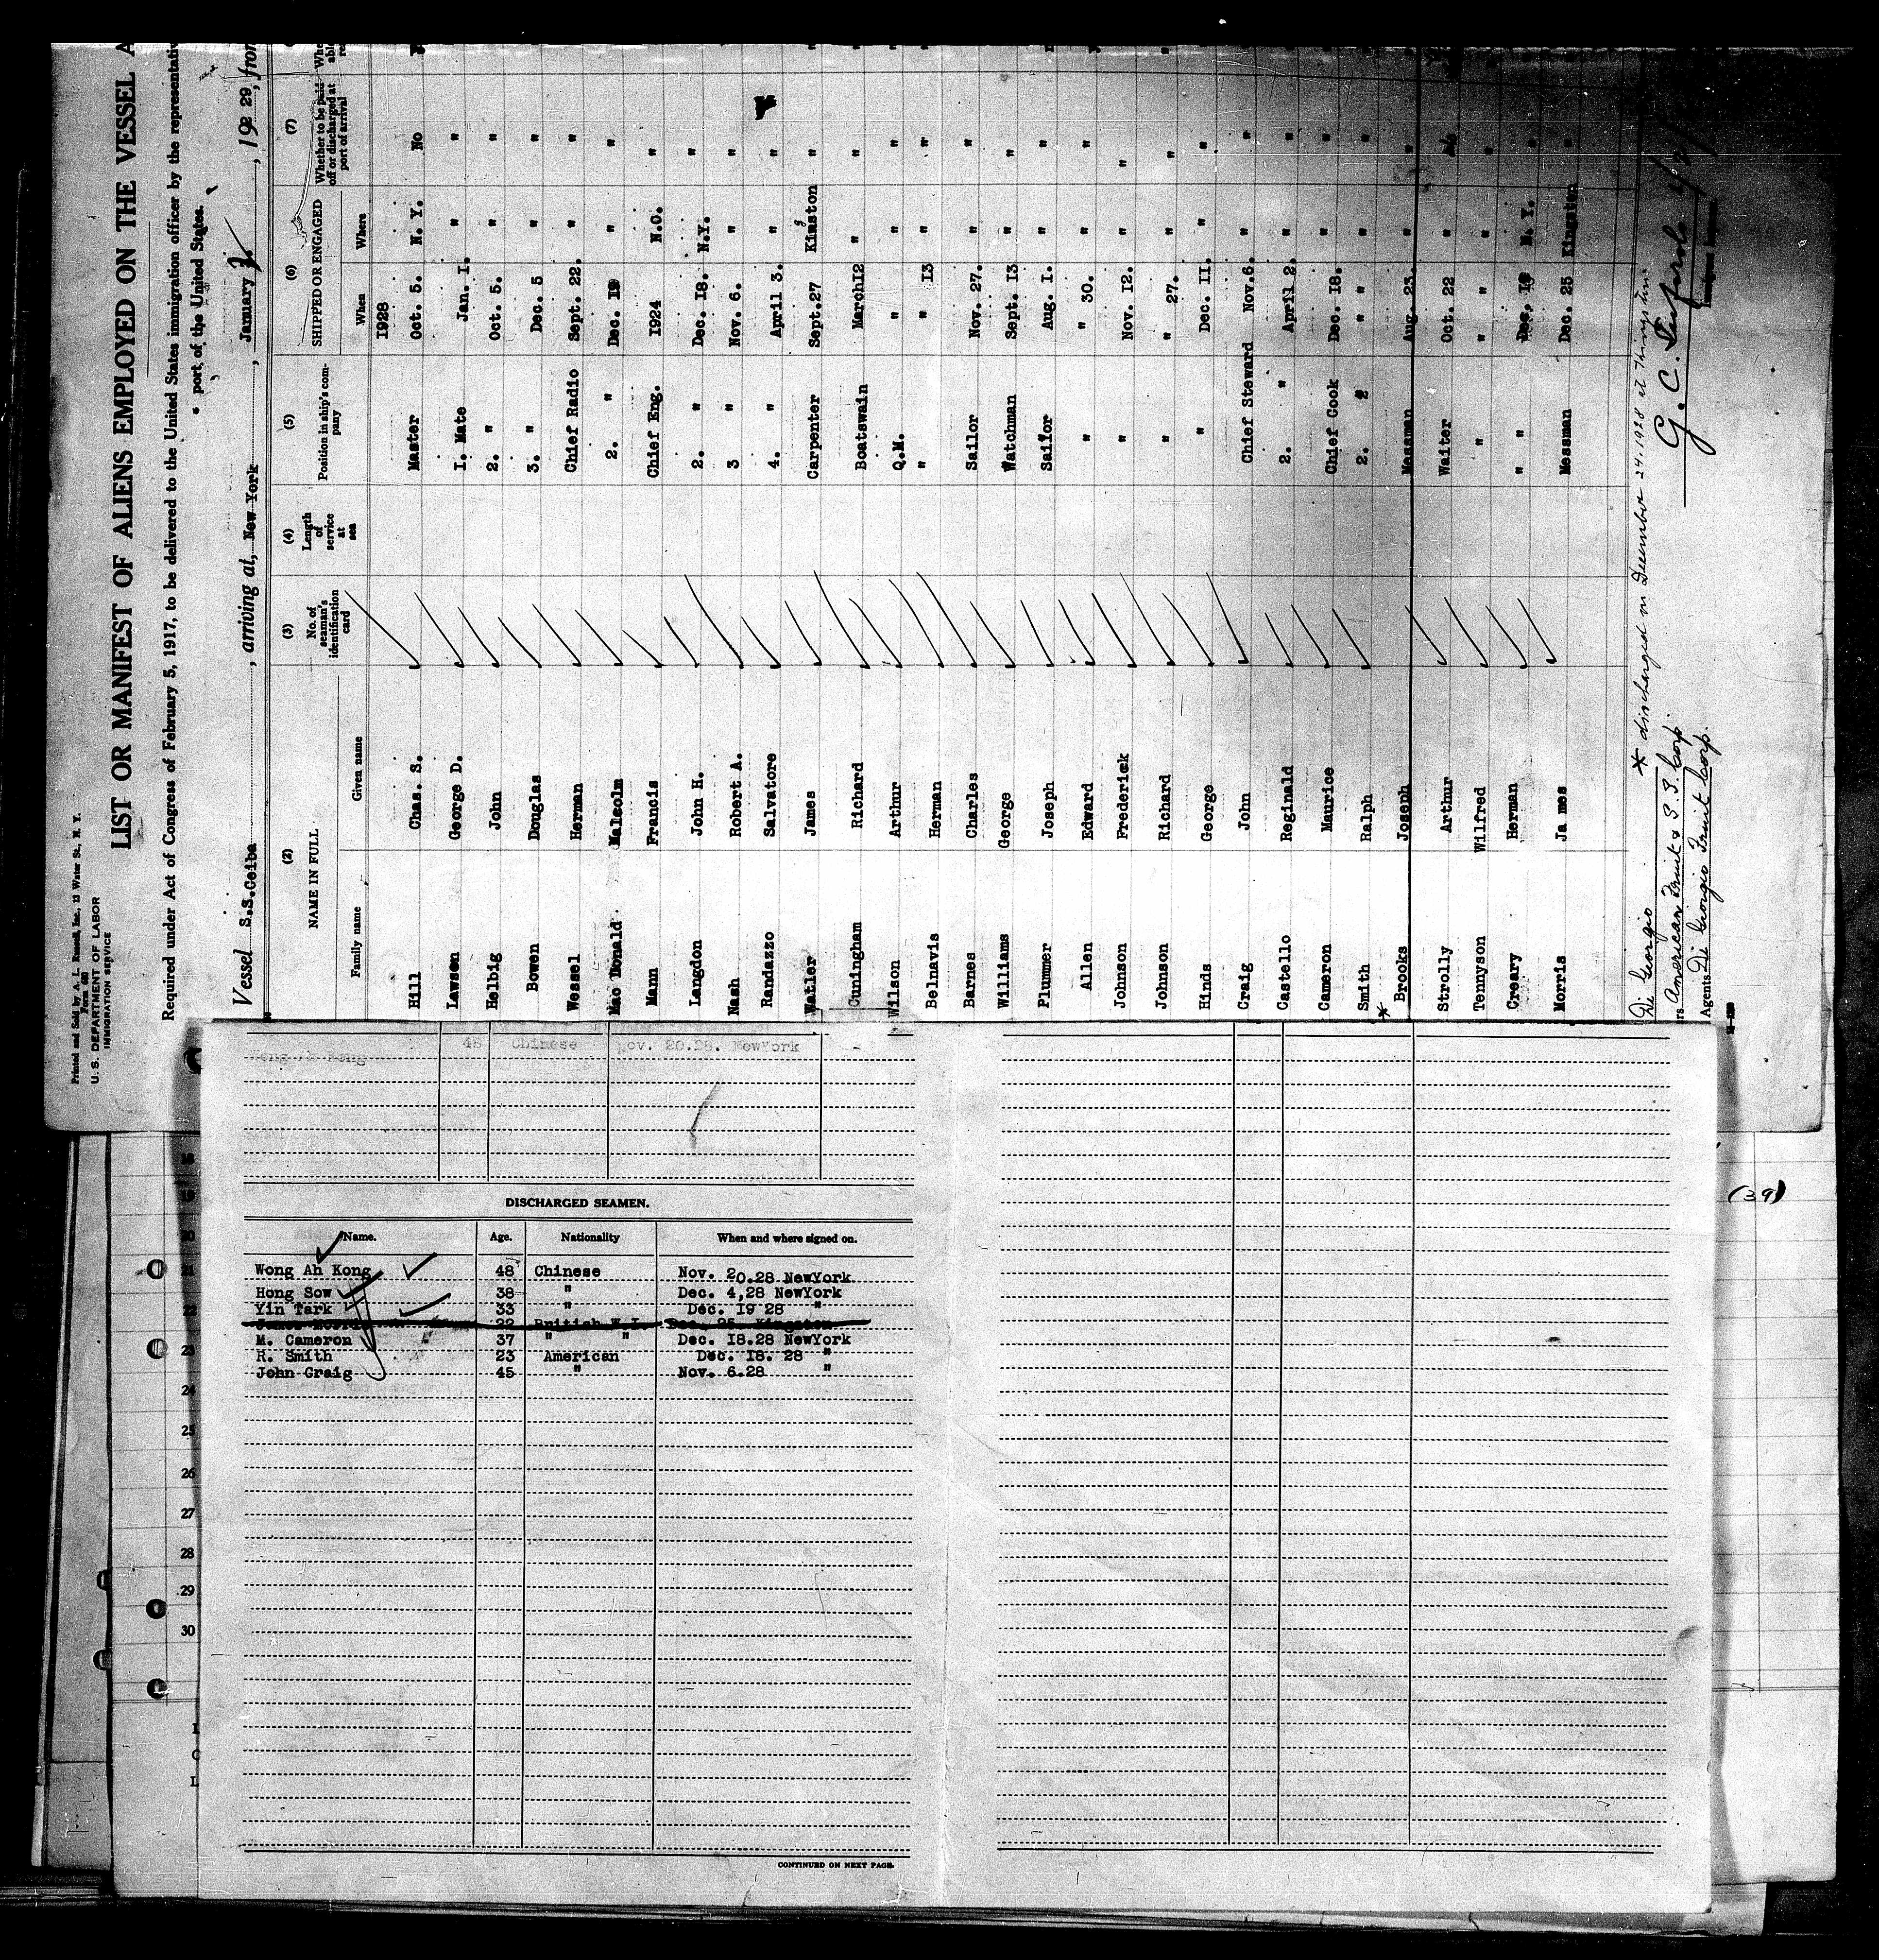 Printed and Sold by A. L. Russell, Inc., 13 Water St., N. Y.
Form 680
U. S. DEPARTMENT OF LABOR
IMMIGRATION SERVICE
LIST OR MANIFEST OF ALIENS EMPLOYED ON THE VESSEL A
Required under Act of Congress of February 5, 1917, to be delivered to the United States immigration officer by the representativ
port of the United States.
Vessel S.S.Ceiba, arriving at, New York, January 2, 1929, from
(2) (3) (4) (5) (6) (7)
NAME IN FULL No. of seaman's identification card Length of service at sea Position in ship's company SHIPPED OR ENGAGED Whether to be paid off or discharged at port of arrival
Family name Given name When Where
1928
Hill Chas. S. Master Oct. 5. N. Y. No
Lawsen George D. I. Mate Jan. I. " "
Helbig John 2. " Oct. 5. " "
Bowen Douglas 3. " Dec. 5 " "
Wessel Herman Chief Radio Sept. 22. " "
Mac Donald Malcolm 2. " Dec. 19 " "
Mann Francis Chief Eng. 1924 N.O. "
Langdon John H. 2. " Dec. 18. N.Y. "
Nash Robert A. 3 " Nov. 6. " "
Randazzo Salvatore 4. " April 3. " "
Watler James Carpenter Sept.27 Kingston "
Cunningham Richard Boatswain March12 " "
Wilson Arthur Q.M. " " "
Belnavis Herman " " 13 " "
Barnes Charles Sailor Nov. 27. " "
Williams George Watchman Sept. 13 " "
Plummer Joseph Sailor Aug. 1. " "
Allen Edward " " 30. " "
Johnson Frederick " Nov. 12. " "
Johnson Richard " " 27. " "
Hinds George " Dec. 11. " "
Craig John Chief Steward Nov.6. " "
Castello Reginald 2. " April 2. " "
Cameron Maurice Chief Cook Dec. 18. " "
Smith Ralph 2. " " " "
* Brooks Joseph Messman Aug. 23. " "
Strolly Arthur Waiter Oct. 22 "
Tennyson Wilfred " " " "
Creary Herman " Dec. 19 N. Y. "
Morris Ja mes Messman Dec. 25 Kingston "
* discharged on December 24, 1928 at Kingston
Di Giorgio
rs American Fruit & S. S. Corp.
Agents Di Giorgio Fruit Corp.
48 Chinese ov. 20.28. NewYork
DISCHARGED SEAMEN.
Name. Age. Nationality When and where signed on.
Wong Ah Kong 48 Chinese Nov. 20.28 NewYork
Hong Sow 38 " Dec. 4,28 NewYork
Yin Tark 33 " Dec. 19 28 "
James Morris 22 British W.I. Dec. 25 Kingston
M. Cameron 37 " " Dec. 18.28 NewYork
R. Smith 23 American Dec. 18. 28 "
John Craig 45 " Nov. 6.28 "
CONTINUED ON NEXT PAGE.
(39)
18
19
20
21
22
23
24
25
26
27
28
29
30